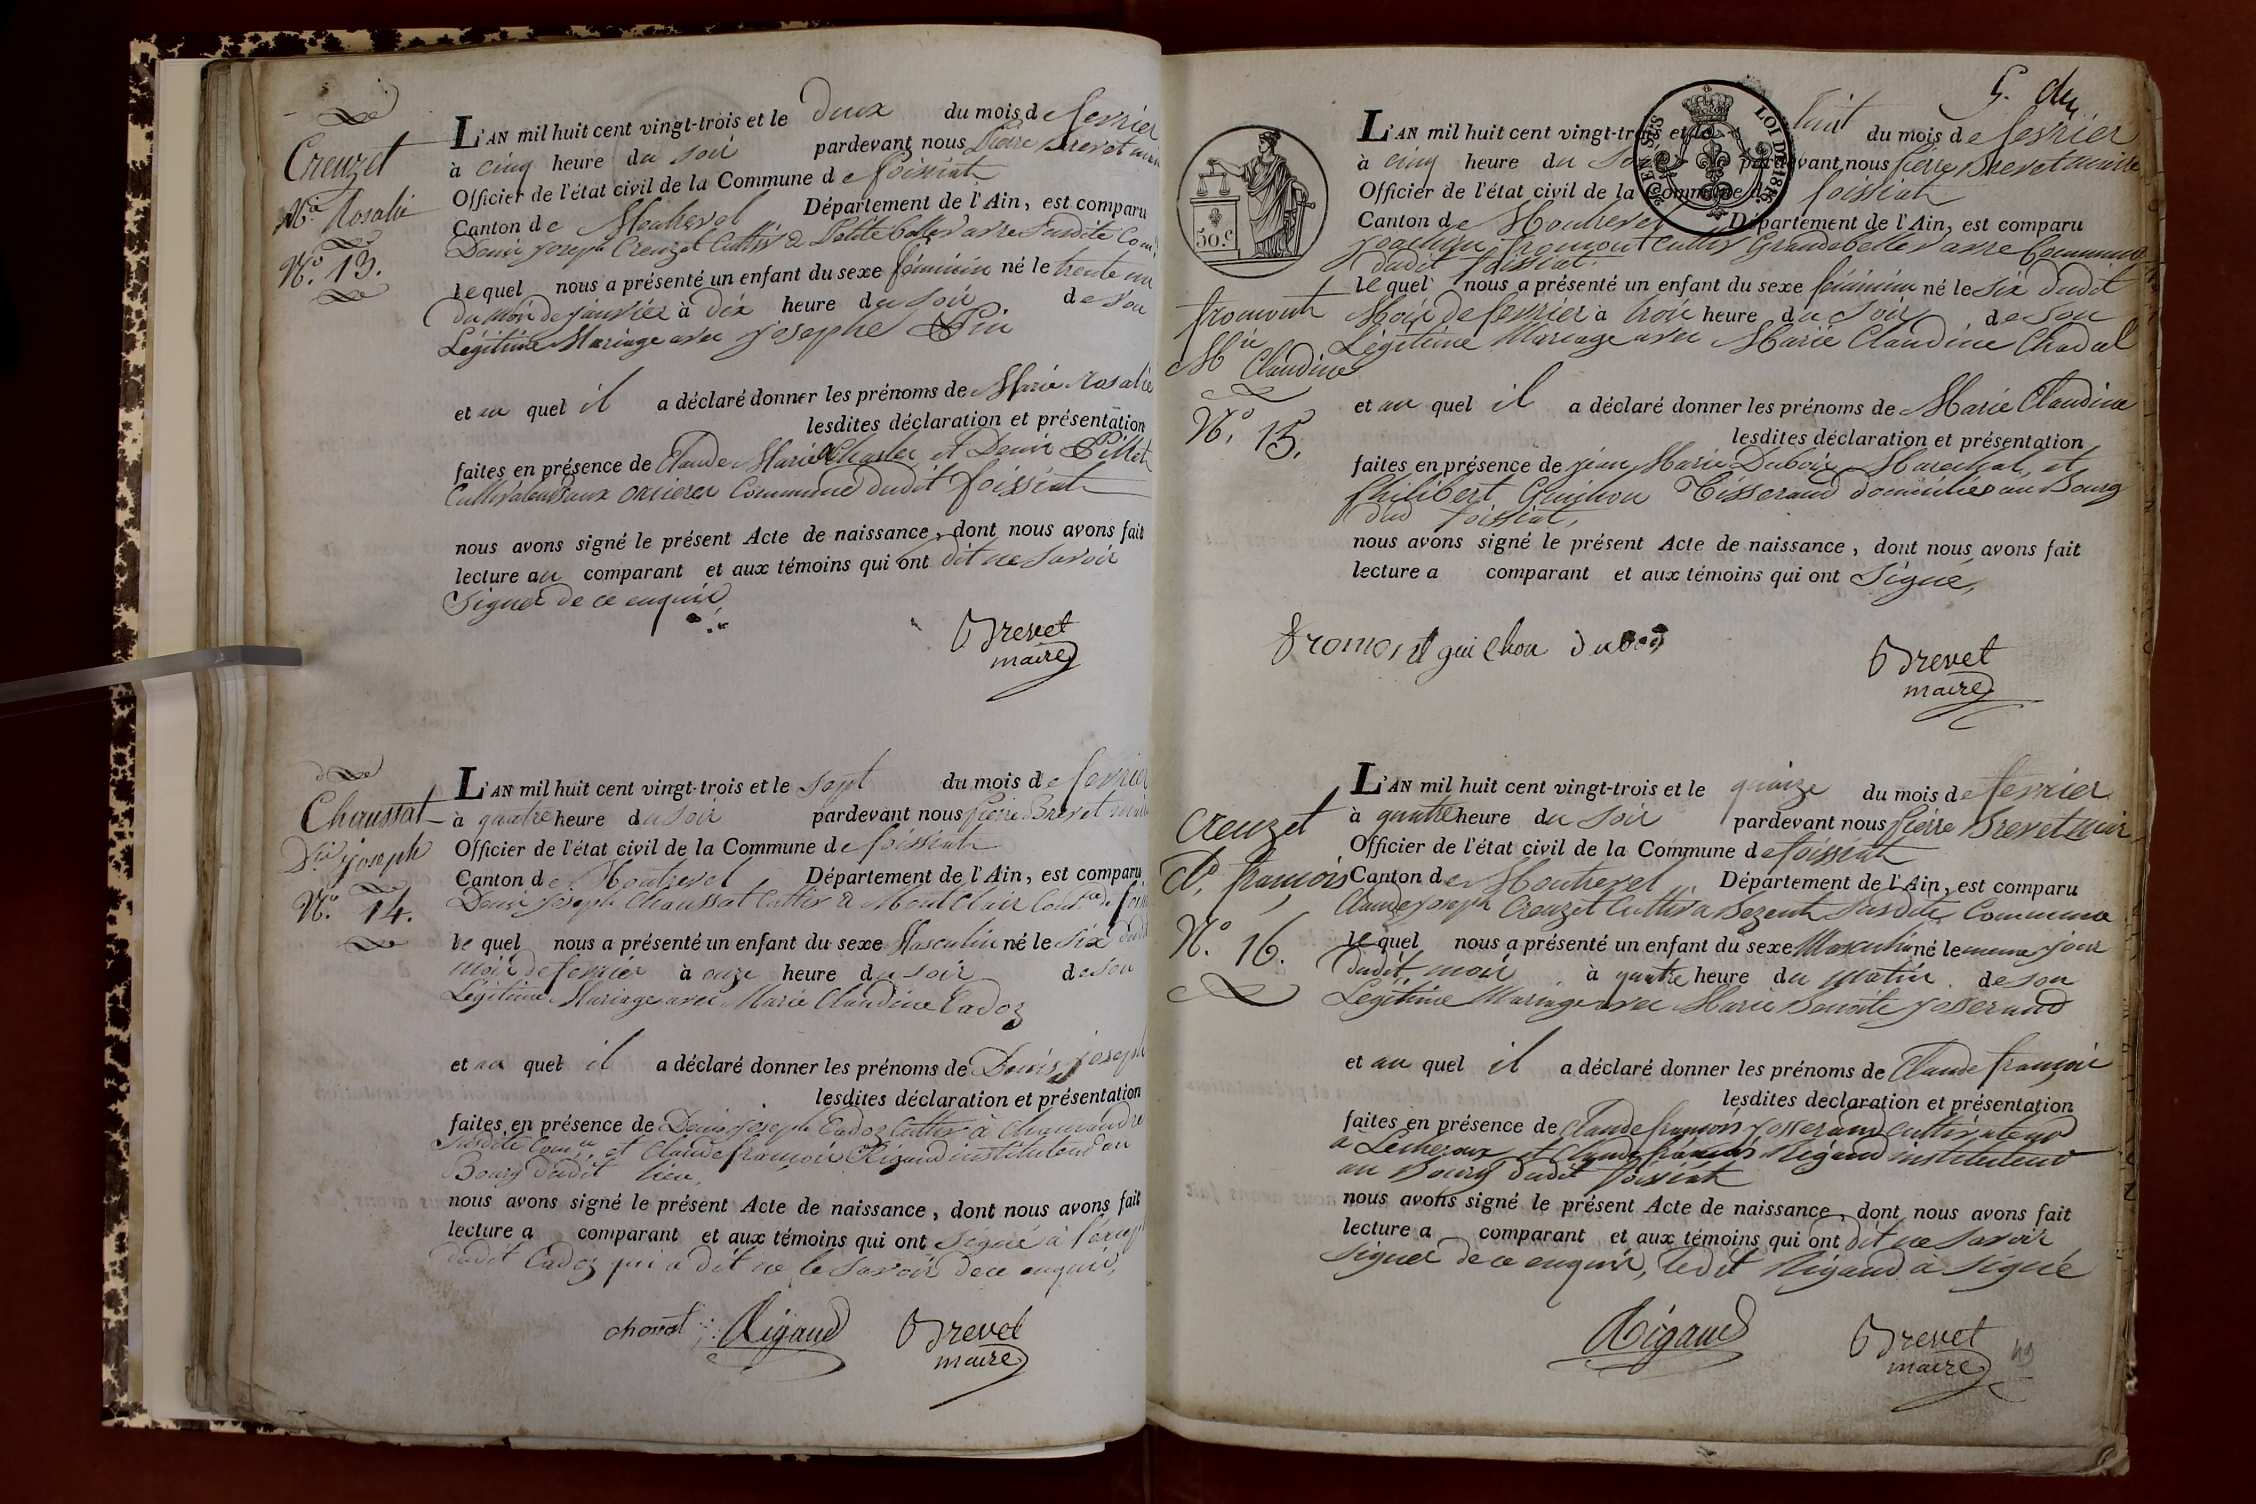 Creuzet
Mie Rosalie
N.° 13.
L'AN mil huit cent vingt-trois et le deux du mois de fevrier
à cinq heure du soir pardevant nous Pierre Brevet maire
Officier de l'état civil de la Commune de foissiat
Canton de Montrevel Département de l'Ain, est comparu
Denis Joseph Creuzet Cultivr à Petite Bellevavre Susdite Com.
lequel nous a présenté un enfant du sexe féminin né le trente un
du mois de janvier à dix heure du soir de son
Légitime Mariage avec Josephe Pin
et au quel il a déclaré donner les prénoms de Marie Rosalie
lesdites déclaration et présentation
faites en présence de Claude Marie Charlet et Denis Pillet
Cultivateurs aux orcieres Commune dudit foissiat
nous avons signé le présent Acte de naissance, dont nous avons fait
lecture au comparant et aux témoins qui ont dit ne savoir
signer de ce enquis,
Brevet
maire
Chaussat
Dis joseph
N.° 14.
L'AN mil huit cent vingt-trois et le sept du mois de fevrier
à quatre heure du soir pardevant nous pierre Brevet maire
Officier de l'état civil de la Commune de foissiat
Canton de Montrevel Département de l'Ain, est comparu
Denis Joseph Chaussat Cultivr à Montclair
le quel nous a présenté un enfant du sexe Masculin né le six dudit
mois de fevrier à onze heure du soir de son
Légitime Mariage avec Marie Claudine Cadoz
et au quel il a déclaré donner les prénoms de Denis joseph
lesdites déclaration et présentation
faites en présence de Denis joseph Cadoz Cultivr à Chamandre
Susdite Comne, et Claude françois Rigaud instituteur au
Bourg dudit lieu,
nous avons signé le présent Acte de naissance, dont nous avons fait
lecture a comparant et aux témoins qui ont signé à l'excep
dudit Cadoz qui a dit ne le savoir de ce enquis,
chossat Rigaud Brevet
maire
5.
50.c
LOI DE 1816
fromont
Mie Claudine
N.° 15.
L'AN mil huit cent vingt-trois et le huit du mois de fevrier
à cinq heure du soir pardevant nous pierre Brevet maire
Officier de l'état civil de la Commune de foissiat
Canton de Montrevel Département de l'Ain, est comparu
joachim fromont Cultivr Grande bellevavre Commune
dudit foissiat.
le quel nous a présenté un enfant du sexe féminin né le six dudit
Mois de fevrier à trois heure du soir de son
Légitime Mariage avec Marie Claudine Chadal
et au quel il a déclaré donner les prénoms de Marie Claudine
lesdites déclaration et présentation
faites en présence de jean Marie Dubois Marechal, et
Philibert Guichon Tisserand domiciliés au Bourg
dud foissiat,
nous avons signé le présent Acte de naissance, dont nous avons fait
lecture a comparant et aux témoins qui ont signé,
fromont guichon dubois Brevet
maire
Creuzet
Cl. françois
N.° 16.
L'AN mil huit cent vingt-trois et le quinze du mois de fevrier
à quatre heure du soir pardevant nous pierre Brevet maire
Officier de l'état civil de la Commune de foissiat
Canton de Montrevel Département de l'Ain, est comparu
Claude Joseph Creuzet Cultivr à Bezent Susdite Commune
le quel nous a présenté un enfant du sexe Masculin né le meme jour
dudit mois à quatre heure du matin de son
Légitime Mariage avec Marie Benoite josserand
et au quel il a déclaré donner les prénoms de Claude françois
lesdites déclaration et présentation
faites en présence de Claude françois josserand cultivateur
à Lecheroux et Claude françois Rigaud instituteur
au Bourg dudit foissiat
nous avons signé le présent Acte de naissance, dont nous avons fait
lecture a comparant et aux témoins qui ont dit ne savoir
signer de ce enquis, ledit Rigaud a signé
Rigaud Brevet
maire
49